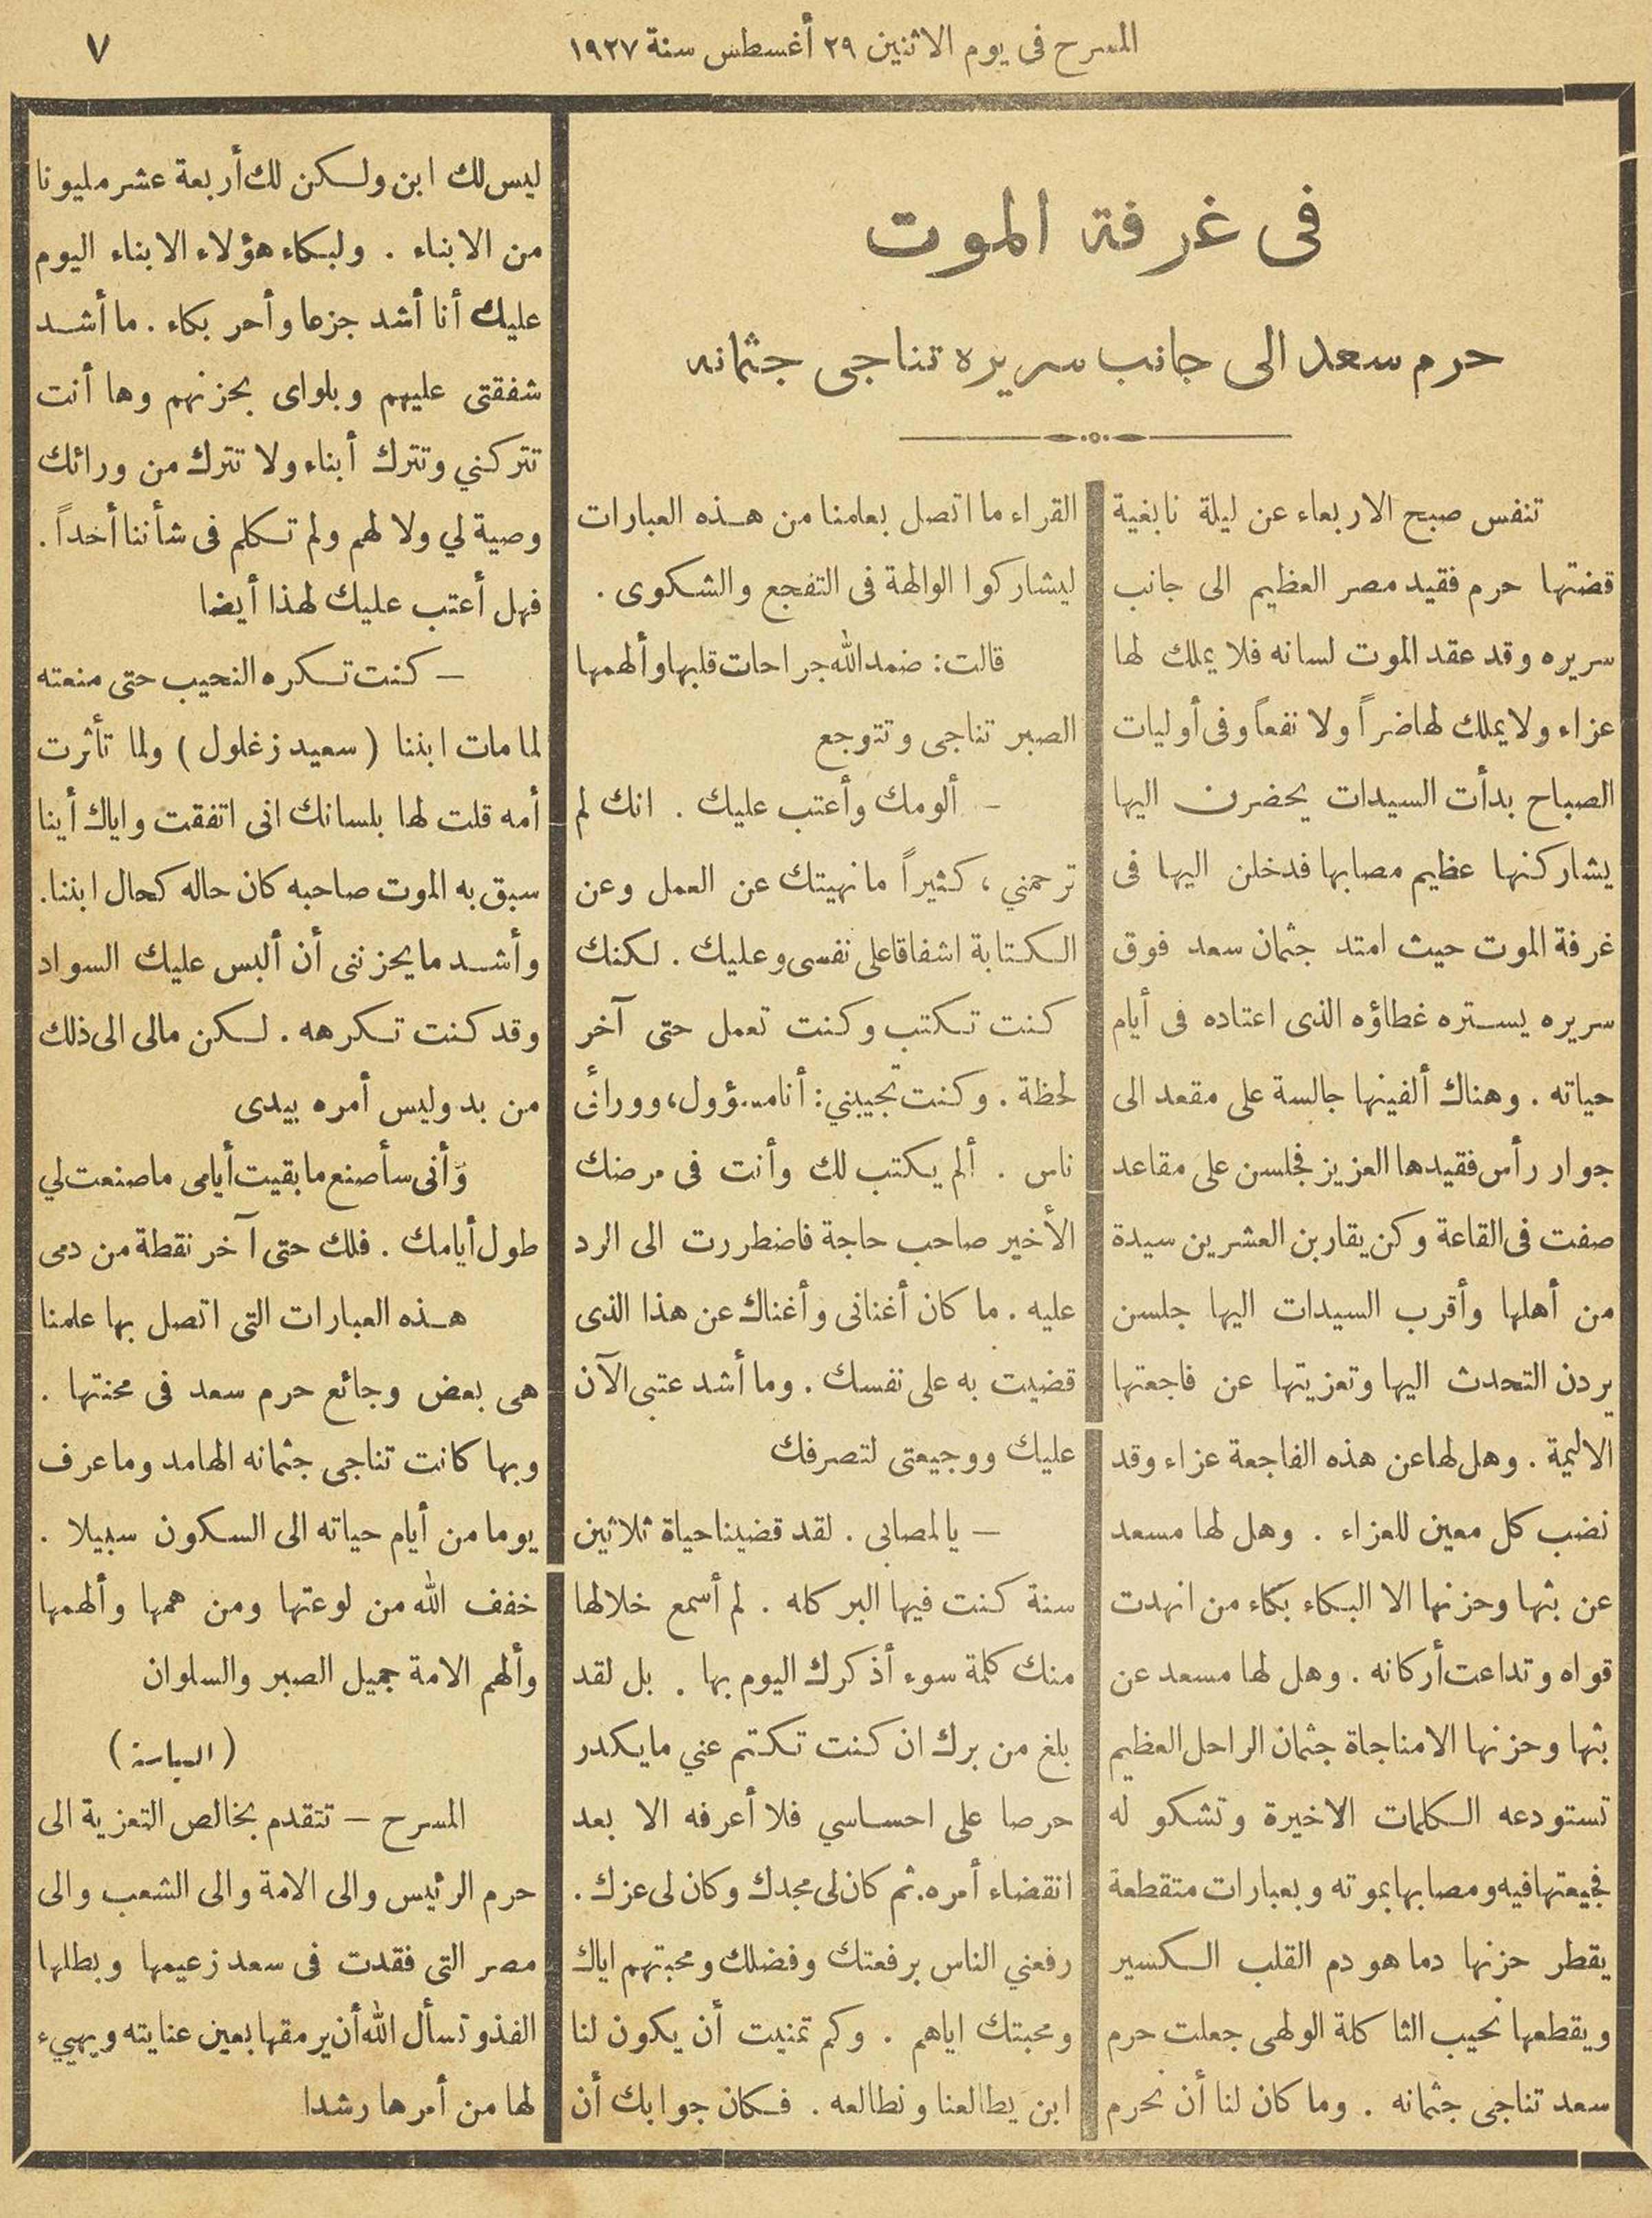 المسرح فى يوم الاثنين ٢٩ أغسطس سنة ١٩٢٧
٧
فى غرفة الموت
حرم سعد الى جانب سريره تناجى جثمانه
تنفس صبح الاربعاء عن ليلة نابغية
قضتها حرم فقيد مصر العظيم الى جانب
سريره وقد عقد الموت لسانه فلا يملك لها
عزاء ولا يملك لها ضراً ولا نفعاً وفى أوليات
الصباح بدأت السيدات يحضرن اليها
يشاركنها عظيم مصابها فدخلن اليها فى
غرفة الموت حيث امتد جثمان سعد فوق
سريره يستره غطاؤه الذى اعتاده فى أيام
حياته . وهناك ألفينها جالسة على مقعد الى
جوار رأس فقيدها العزيز فجلسن على مقاعد
صفت فى القاعة وكن يقاربن العشرين سيدة
من أهلها وأقرب السيدات اليها جلسن
يردن التحدث اليها وتعزيتها عن فاجعتها
الاليمة . وهل لها عن هذه الفاجعة عزاء وقد
نضب كل معين للعزاء . وهل لها مسعد
عن بثها وحزنها الا البكاء بكاء من انهدت
قواه وتداعت أركانه . وهل لها مسعد عن
بثها وحزنها الا مناجاة جثمان الراحل العظيم
تستودعه الكلمات الاخيرة وتشكو له
فجيعتها فيه ومصابها بموته وبعبارات متقطعة
يقطر حزنها دما هو دم القلب الكسير
ويقطعها نحيب الثاكلة الولهى جعلت حرم
سعد تناجى جثمانه . وما كان لنا أن نحرم
القراء ما اتصل بعلمنا من هذه العبارات
ليشاركوا الوالهة فى التفجع والشكوى .
قالت: ضمد الله جراحات قلبها وألهمها
الصبر تناجى وتتوجع
– ألومك وأعتب عليك . انك لم
ترحمني ، كثيراً ما نهيتك عن العمل وعن
الكتابة اشفاقا على نفسى وعليك . لكنك
كنت تكتب وكنت تعمل حتى آخر
لحظة . وكنت تجيبني : أنا مسؤول، وورائى
ناس . ألم يكتب لك وأنت فى مرضك
الأخير صاحب حاجة فاضطررت الى الرد
عليه . ما كان أغنانى وأغناك عن هذا الذى
قضيت به على نفسك . وما أشد عتبى الآن
عليك ووجيعتى لتصرفك
– يا لمصابى . لقد قضينا حياة ثلاثين
سنة كنت فيها البر كله . لم أسمع خلالها
منك كلمة سوء أذكرك اليوم بها . بل لقد
بلغ من برك ان كنت تكتم عني ما يكدر
حرصا على احساسي فلا أعرفه الا بعد
انقضاء أمره. ثم كان لى مجدك وكان لى عزك .
رفعني الناس برفعتك وفضلك ومحبتهم اياك
ومحبتك اياهم . وكم تمنيت أن يكون لنا
ابن يطالعنا ونطالعه . فكان جوابك أن
ليس لك ابن ولكن لك أربعة عشر مليونا
من الابناء . ولبكاء هؤلاء الابناء اليوم
عليك أنا أشد جزعا وأحر بكاء . ما أشد
شفقتى عليهم وبلواى بحزنهم وها أنت
تتركني وتترك أبناء ولا تترك من ورائك
وصية لي ولا لهم ولم تكلم فى شأننا أخداً .
فهل أعتب عليك لهذا أيضا
– كنت تكره النحيب حتى منعته
لما مات ابننا ( سعيد زغلول ) ولما تأثرت
أمه قلت لها بلسانك انى اتفقت واياك أينا
سبق به الموت صاحبه كان حاله كحال ابننا.
وأشد ما يحزننى أن ألبس عليك السواد
وقد كنت تكرهه . لكن مالى الى ذلك
من بد وليس أمره بيدى
وأنى سأصنع ما بقيت أيامى ما صنعت لي
طول أيامك . فلك حتى آخر نقطة من دمى
هذه العبارات التى اتصل بها علمنا
هى بعض وجائع حرم سعد فى محنتها .
وبها كانت تناجى جثمانه الهامد وما عرف
يوما من أيام حياته الى السكون سبيلا .
خفف الله من لوعتها ومن همها وألهمها
وألهم الامة جميل الصبر والسلوان
( السياسة )
المسرح – تتقدم بخالص التعزية الى
حرم الرئيس والى الامة والى الشعب والى
مصر التى فقدت فى سعد زعيمها وبطلها
الفذ ونسأل الله أن يرمقها بعين عنايته ويهييء
لها من أمرها رشدا